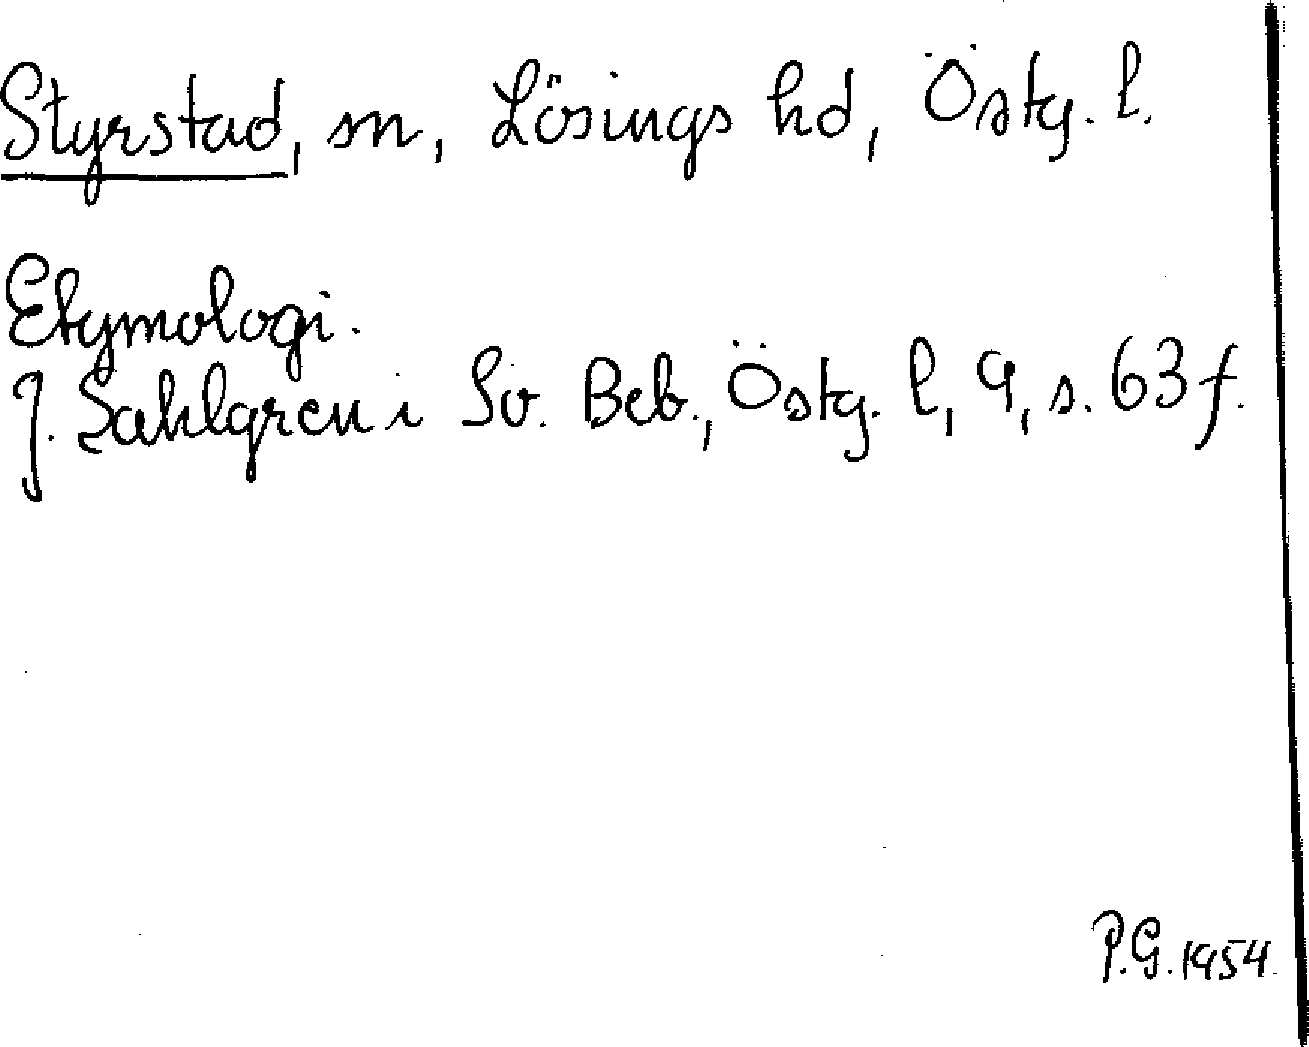 Styrstad, sn, Lösings hd, Östg. l.
Etymologi.
J. Sahlgren i Sv. Beb., Östg. l, 9, s. 63 f.
P.G. 1954.